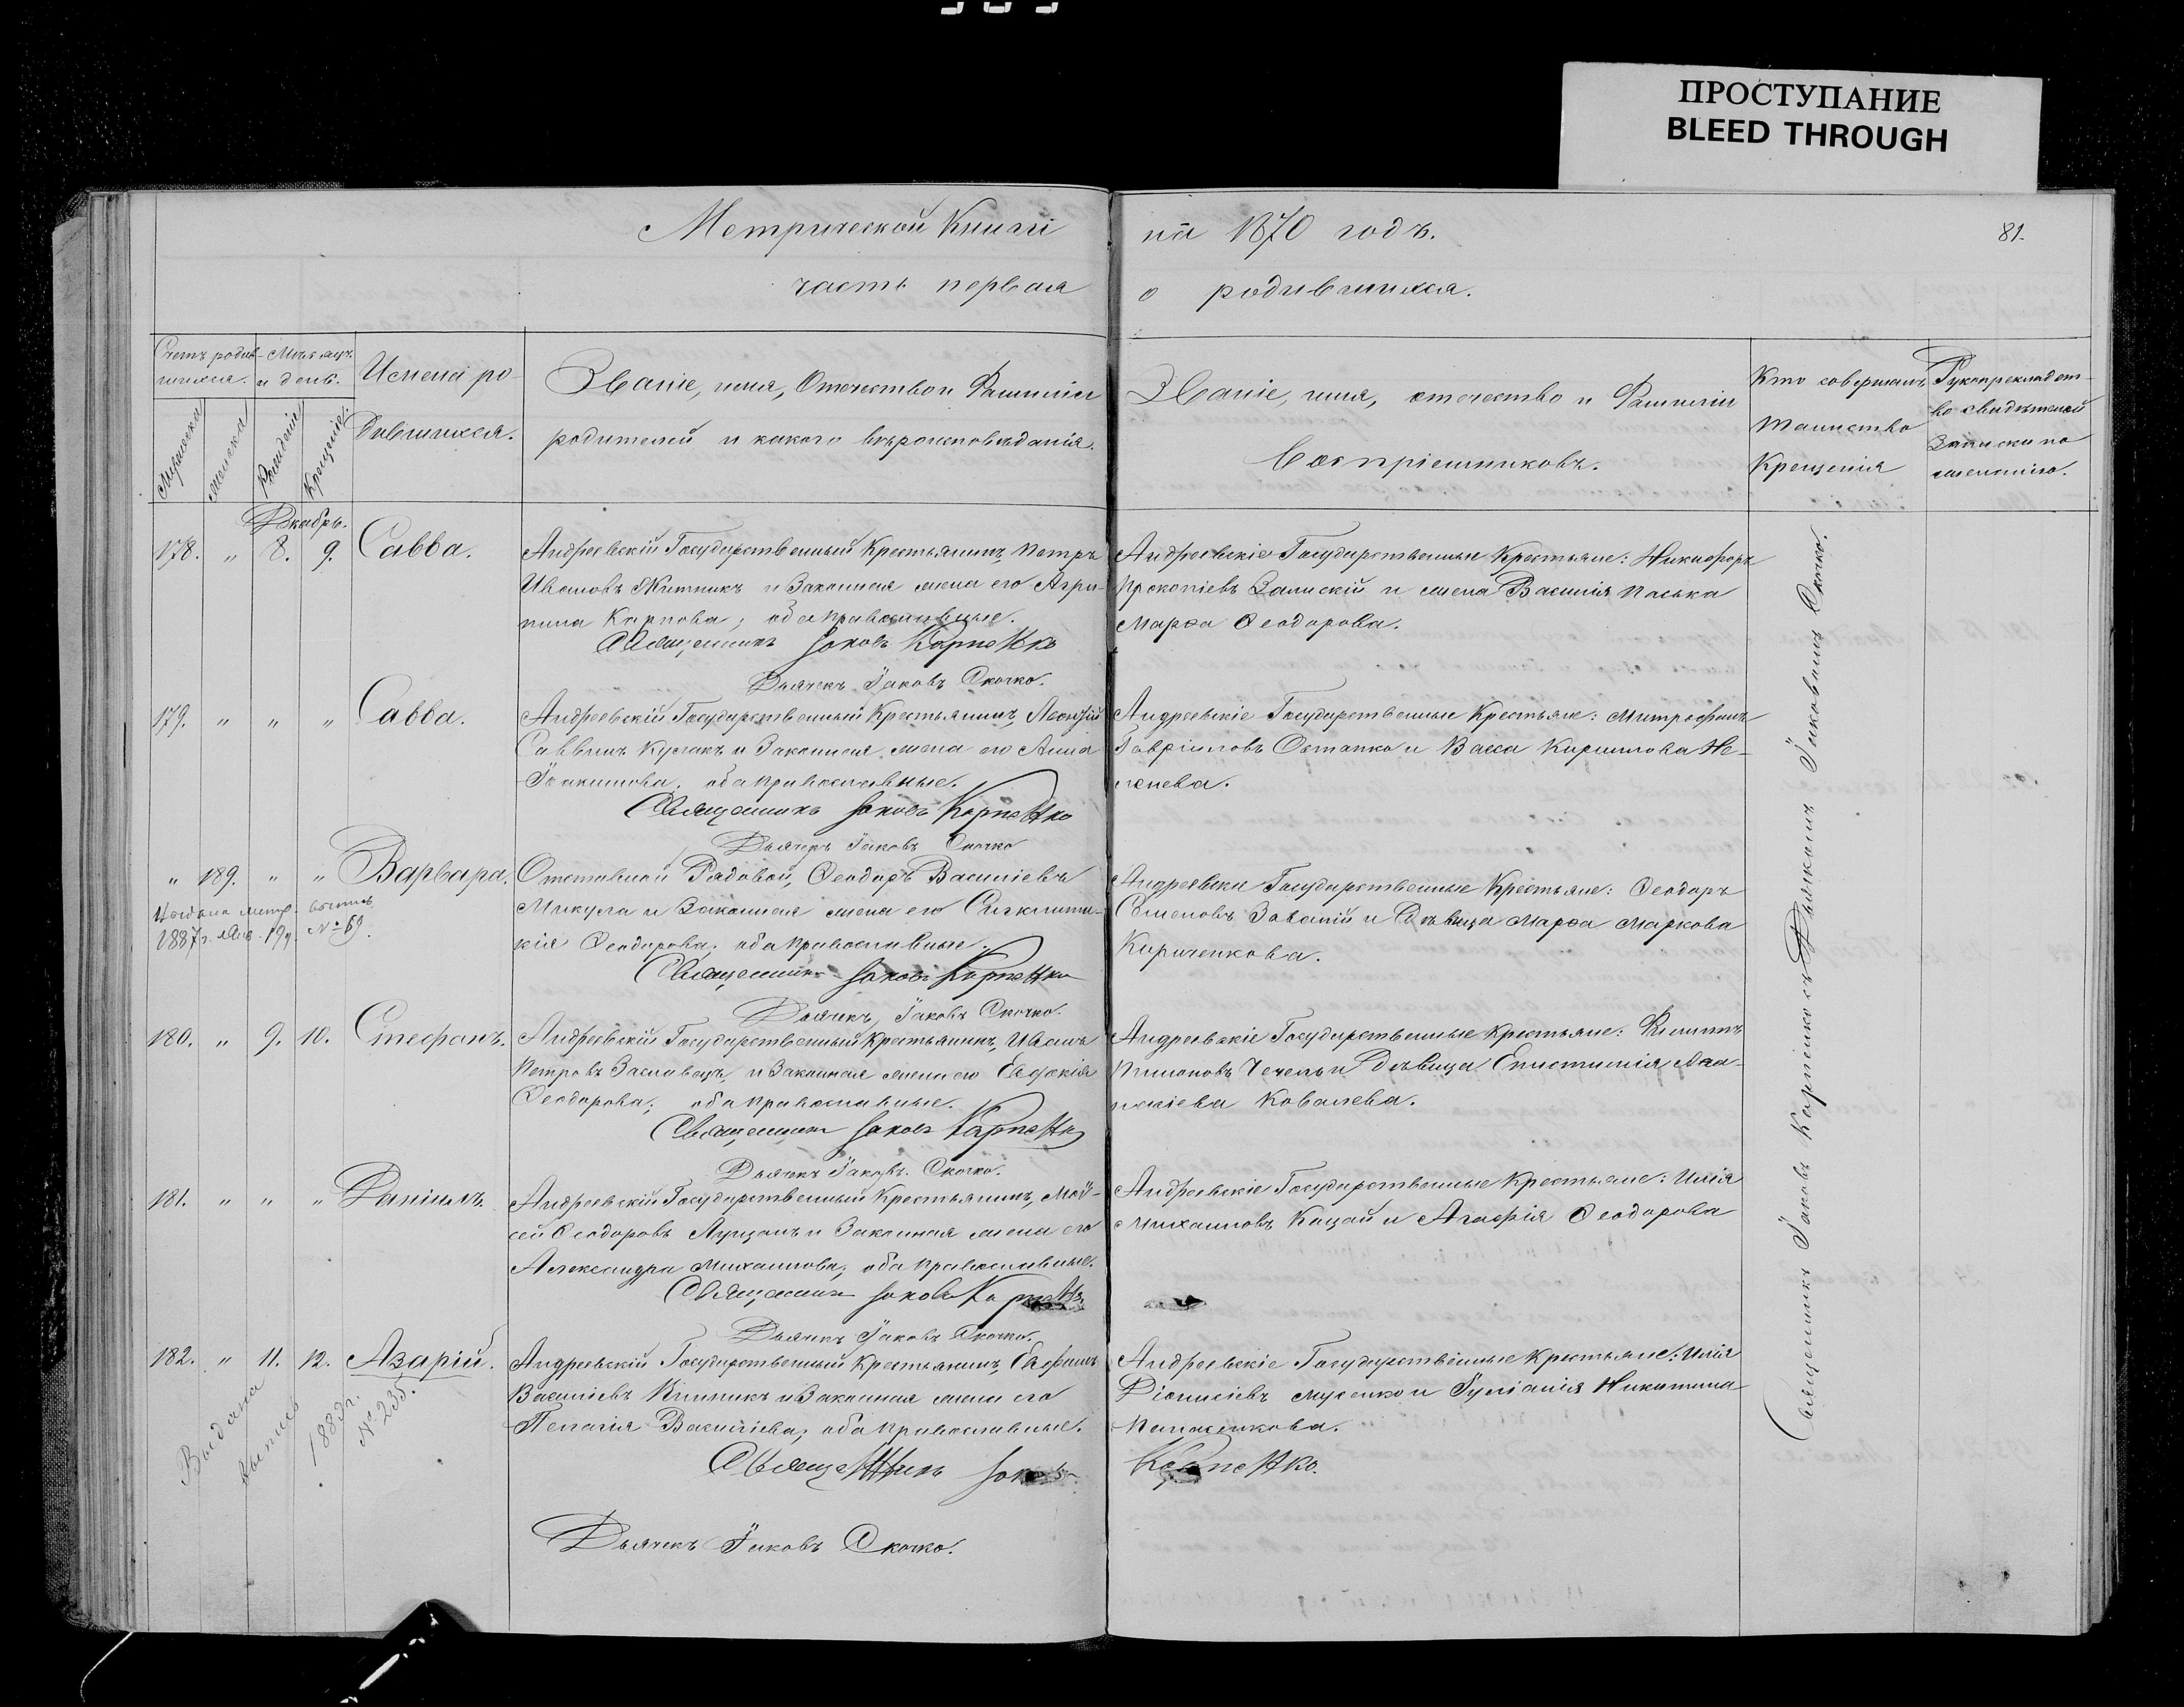 ПРОСТУПАНИЕ
BLEED THROUGH
Метрической Книги на 1870 годъ.
81.
часть первая о родившихся.
Счетъ родив-
шихся.
Мужеска
Женска
Мѣсяцъ
и день.
Рожденія
Крещенія
Имена ро-
дившихся.
Званіе, имя, Отечество и Фамилія
родителей и какого вѣроисповѣданія.
Званіе, имя, отечество и Фамилія
Воспріемниковъ.
Кто совершалъ
таинство
Крещенія
Рукоприкладст-
во свидѣтелей
записки по
желанію.
Декабрь.
178. „ 8. 9. Савва.
Андреевскій Государственный Крестьянинъ, Петръ
Ивановъ Житникъ и Законная жена его Агри-
пина Карпова; оба православные.
Священникъ Іаковъ Карпенко
Дьячекъ Іаковъ Скочко.
Андреевскіе Государственные Крестьяне: Никифоръ
Прокопіевъ Залискій и жена Василія Паська
Марѳа Ѳеодорова.
179. „ „ „ Савва.
Андреевскій Государственный Крестьянинъ, Леонтій
Саввинъ Кулакъ и Законная жена его Анна
Іоакимова; оба православные.
Священникъ Іаковъ Карпенко
Дьячекъ Іаковъ Скочко
Андреевскіе Государственные Крестьяне: Митрофанъ
Гавріиловъ Остапко и Васса Кирилова Не-
пенева.
„ 189. „ „ Варвара.
1887 г. Янв. 19 д. № 69.
Отставной Рядовой, Ѳеодоръ Василіевъ
Микула и Законная жена его Сигклити-
кія Ѳеодорова; оба православные.
Священникъ Іаковъ Карпенко
Дьячекъ, Іаковъ Скочко.
Андреевски Государственные Крестьяне: Ѳеодоръ
Семеновъ Заватій и Дѣвица Марѳа Маркова
Кириченкова.
180. „ 9. 10. Стефанъ.
Андреевскій Государственный Крестьянинъ, Иванъ
Петровъ Заславецъ, и Законная жена его Евдокія
Ѳеодорова; оба православные.
Священникъ Іаковъ Карпенко
Дьячекъ Іаковъ Скочко.
Андреевскіе Государственные Крестьяне: Филиппъ
Пименовъ Чечель и Дѣвица Епистимія
Ковалева.
181. „ „ „ Даніилъ.
Андреевскій Государственный Крестьянинъ, Мой-
сей Ѳеодоровъ Луцанъ и Законная жена его
Александра Михаилова; оба православные.
Священникъ Іаковъ Карпенко
Дьячекъ Іаковъ Скочко.
Андреевскіе Государственные Крестьяне: Илія
Михаиловъ Кацай и Агафія Ѳеодорова
182. „ 11. 12. Азарій.
Выдана
выпись
1889 г.
№ 235.
Андреевскій Государственный Крестьянинъ, Евфимъ
Василіевъ и Законная жена его
Пелагія Василіева; оба православные.
Священникъ Іаковъ Карпенко.
Дьячекъ Іаковъ Скочко.
Андреевскіе Государственные Крестьяне: Илія
Діонисіевъ Мусенко и Іуліанія Никитина
Панасенкова.
Священникъ Іаковъ Карпенко съ Дьячкомъ Іаковомъ Скочко.